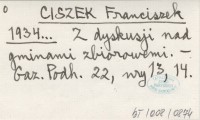 o
CISZEK Franciszek
1934... Z dyskusji nad
gminami zbiorowemi. –
Gaz. Podh. 22, nry 13, 14.
6T/008/0874